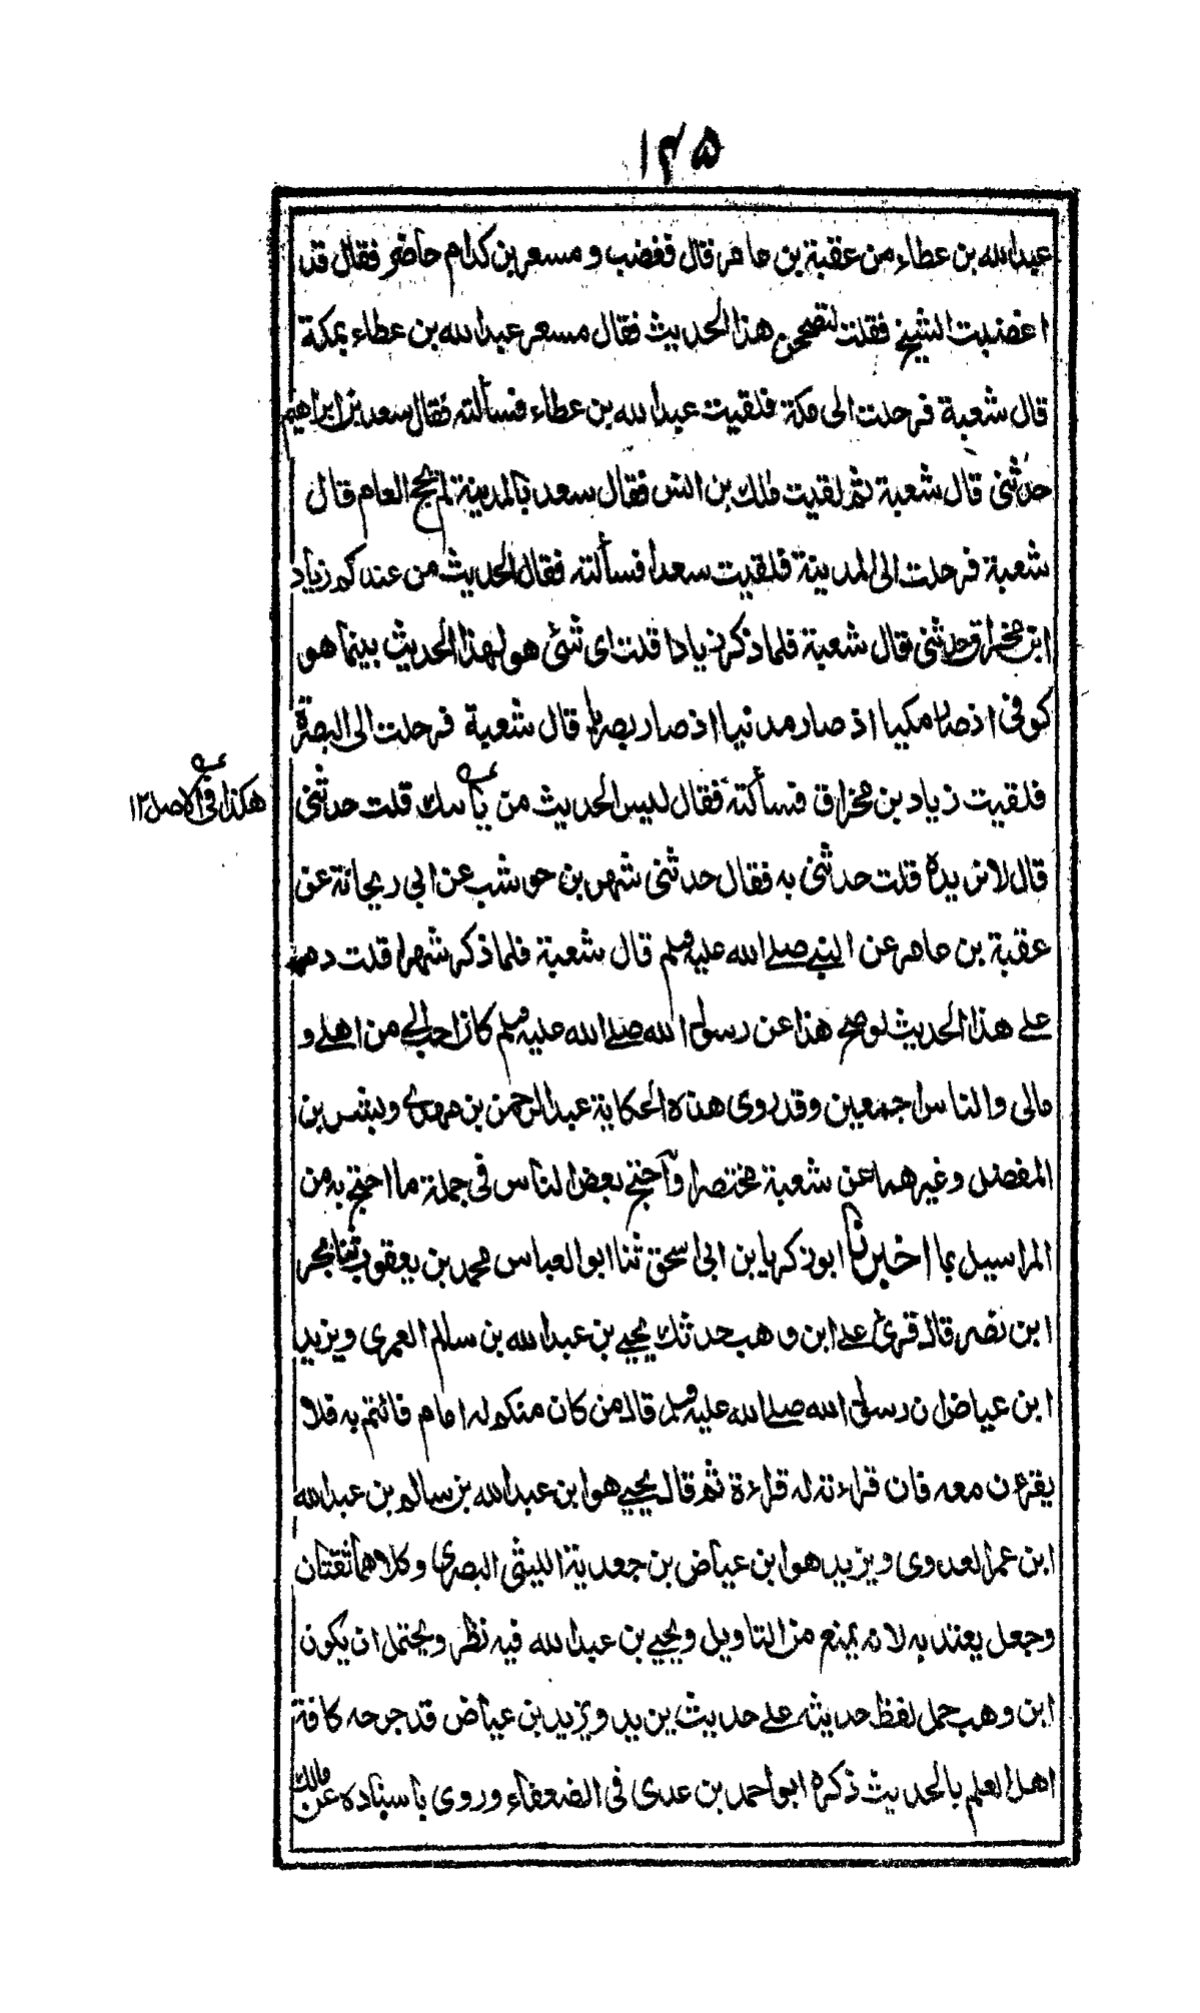 ١٤٥
عبدالله بن عطاء من عقبة بن عامر قال فغضب و مسعر بن كدام حاضر فقال قد
اغضبت الشيخ فقلت لتصححن هذا الحديث فقال مسعر عبدالله بن عطاء بمكة
قال شعبة فرحلت الى مكة فلقيت عبدالله بن عطاء فسألته فقال سعد بن ابراهيم
حدثنى قال شعبة ثم لقيت مالك بن انس فقال سعد بالمدينة لم يحج العام قال
شعبة فرحلت الى المدينة فلقيت سعدا فسألته فقال الحديث من عندكم زياد
ابن مخراق حدثنى قال شعبة فلما ذكر زيادا قلت اى شئى هو لهذا الحديث بينما هو
كوفى اذ صار مكيا اذ صار مدنيا اذ صار بصريا قال شعبة فرحلت الى البصرة
فلقيت زياد بن مخراق فسألته فقال ليس الحديث من بأسك قلت حدثنى
هكذا فى الاصل ١٢
قال لا نريده قلت حدثنى به فقال حدثنى شهر بن حوشب عن ابى ريحانة عن
عقبة بن عامر عن النبى صلى الله عليه وسلم قال شعبة فلما ذكر شهرا قلت دمر
على هذا الحديث لو صح هذا عن رسول الله صلى الله عليه وسلم كان احب الى من اهلى و
مالى والناس اجمعين وقد روى هذه الحكاية عبدالرحمن بن مهدى وبشر بن
المفضل وغيرهما عن شعبة مختصرا واحتج بعض الناس فى جملة ما احتج به من
المراسيل بما اخبرنا ابو زكريا بن ابى اسحق ثنا ابو العباس محمد بن يعقوب ثنا بحر
ابن نصر قال قرئ على ابن وهب حدثك يحيى بن عبدالله بن سالم العمرى ويزيد
ابن عياض ان رسول الله صلى الله عليه وسلم قال من كان منكم له امام فائتم به فلا
يقرءن معه فان قراءته له قراءة ثم قال يحيى هو ابن عبدالله بن سالم بن عبدالله
ابن عمر العدوى ويزيد هو ابن عياض بن جعدبة الليثى البصرى وكلاهما ثقتان
وجعل يعتد به لانه يمنع من التاويل ويحيى بن عبدالله فيه نظر ويحتمل ان يكون
ابن وهب حمل لفظ حديثه على حديث يزيد ويزيد بن عياض قد جرحه كافة
اهل العلم بالحديث ذكره ابو احمد بن عدى فى الضعفاء وروى باسناده عن مالك